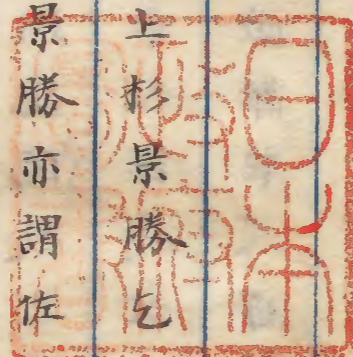 日本
上杉景勝乞
景勝亦謂佐